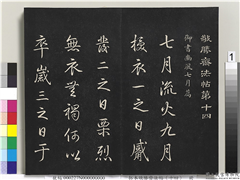 敬勝齋法帖第十四
御書豳風七月篇
七月流火九月
授衣一之日觱
發二之日栗烈
無衣無褐何以
卒歲三之日于